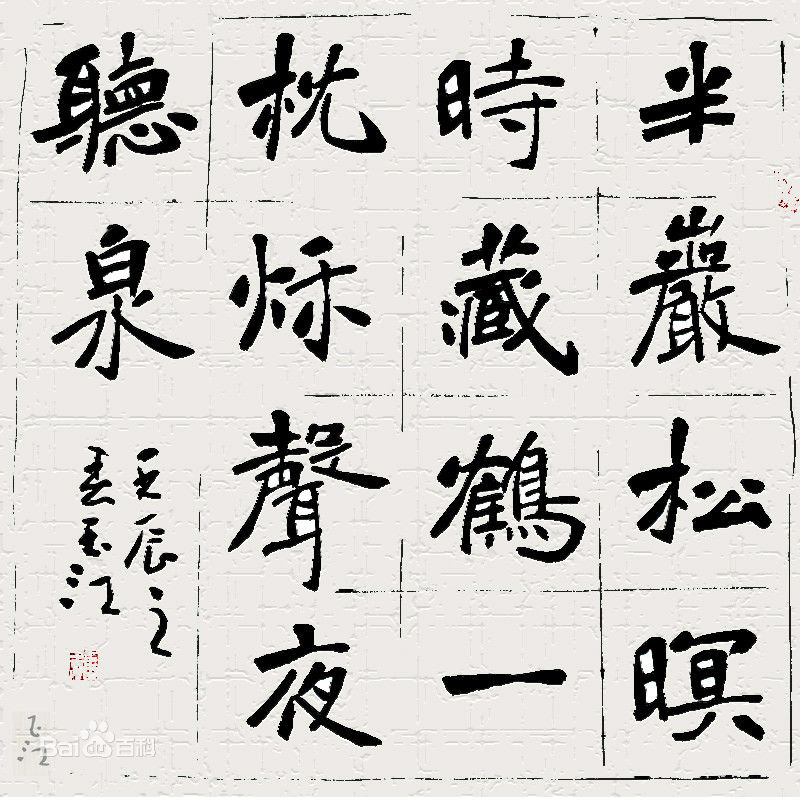 半巖松暝
時藏鶴一
枕秌聲夜
聽泉
壬辰之
春玉江
Bai百科